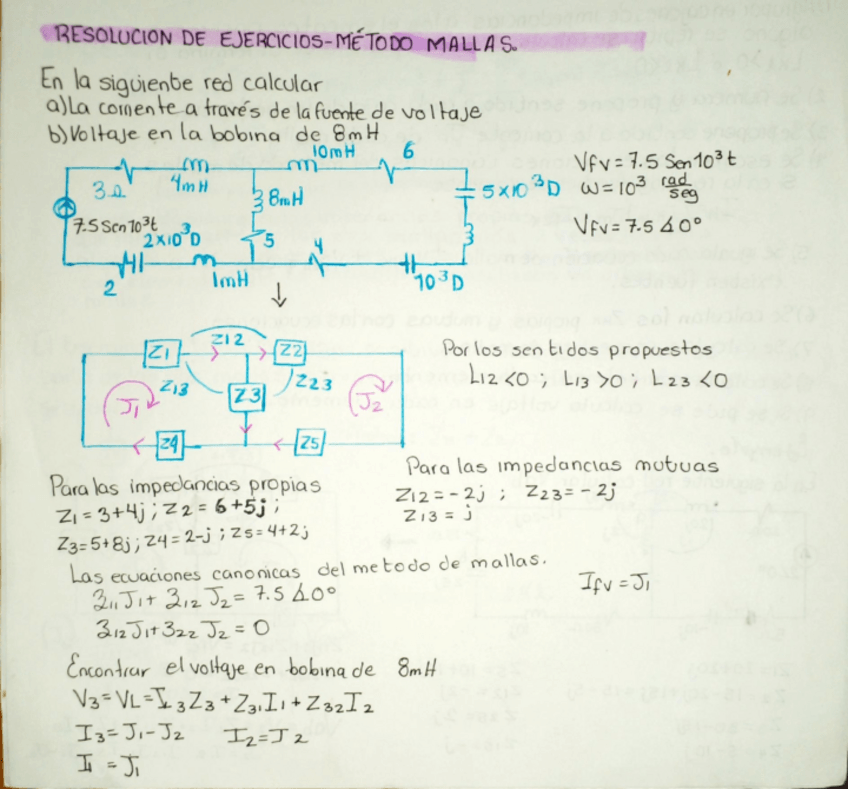 RESOLUCION DE EJERCICIOS-MÉTODO MALLAS.
En la siguiente red calcular
a) La corriente a través de la fuente de voltaje
b) Voltaje en la bobina de 8mH
3Ω
4mH
10mH
6
8mH
5×10³D
7.5 Sen10³t
2×10³D
5
4
3
2
1mH
10³D
Vfv = 7.5 Sen10³t
ω = 10³ rad/seg
Vfv = 7.5∡0°
Z1
Z12
Z2
Z13
Z3
Z23
J1
J2
Z4
Z5
Por los sentidos propuestos
L12<0 ; L13>0 ; L23<0
Para las impedancias propias
Z1=3+4j ; Z2=6+5j ;
Z3=5+8j ; Z4=2-j ; Z5=4+2j
Para las impedancias mutuas
Z12=-2j ; Z23=-2j
Z13=j
Las ecuaciones canonicas del metodo de mallas.
Ʒ11J1+Ʒ12J2=7.5∡0°
Ʒ12J1+Ʒ22J2=0
Ifv=J1
Encontrar el voltaje en bobina de 8mH
V3=VL=I3Z3+Z31I1+Z32I2
I3=J1-J2 I2=J2
I1=J1